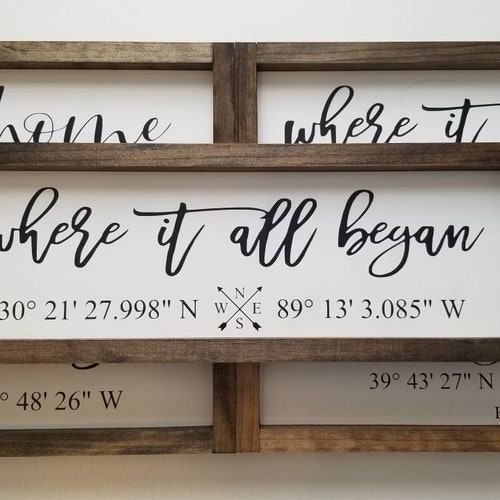 home
where it
where it all began
30° 21' 27.998" N N W E S 89° 13' 3.085" W
39° 43' 27" N
° 48' 26" W